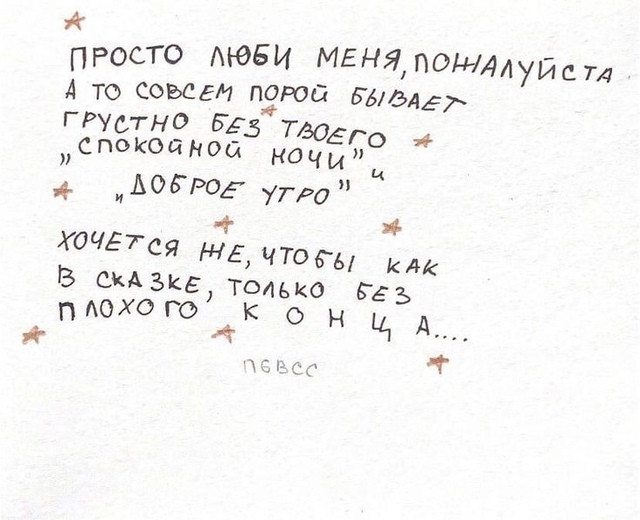 ПРОСТО ЛЮБИ МЕНЯ, ПОЖАЛУЙСТА
А ТО СОВСЕМ ПОРОЙ БЫВАЕТ
ГРУСТНО БЕЗ ТВОЕГО
„СПОКОЙНОЙ НОЧИ" и
„ДОБРОЕ УТРО"
ХОЧЕТСЯ ЖЕ, ЧТОБЫ КАК
В СКАЗКЕ, ТОЛЬКО БЕЗ
ПЛОХОГО К О Н Ц А....
ПБВСС